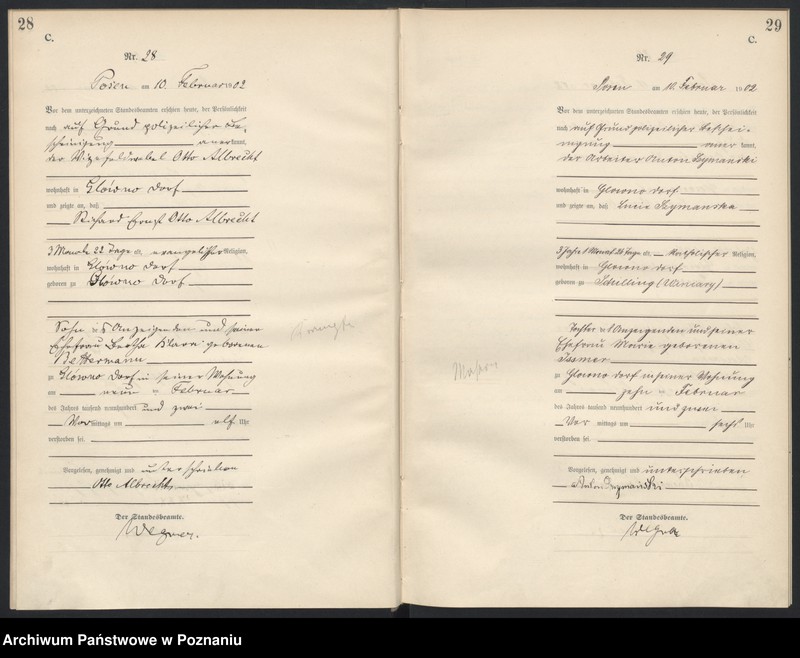 28
C.
Nr. 28
Posen am 10. Februar 1902
Vor dem unterzeichneten Standesbeamten erschien heute, der Persönlichkeit
nach auf Grund polizeilicher Be-
scheinigung anerkannt,
der Vizefeldwebel Otto Albrecht
wohnhaft in Glówno Dorf
und zeigte an, daß
Richard Ernst Otto Albrecht
3 Monate 22 Tage alt, evangelischer Religion,
wohnhaft in Glówno Dorf
geboren zu Glówno Dorf
Sohn des Anzeigenden und seiner
Ehefrau Bertha Klara geborenen
Bettermann
zu Glówno Dorf in seiner Wohnung
am neun ten Februar
des Jahres tausend neunhundert und zwei
Vormittags um elf Uhr
verstorben sei.
Vorgelesen, genehmigt und unterschrieben
Otto Albrecht
Der Standesbeamte.
Wegner.
29
C.
Nr. 29
Posen am 10. Februar 1902
Vor dem unterzeichneten Standesbeamten erschien heute, der Persönlichkeit
nach auf Grund polizeilicher Beschei-
nigung anerkannt,
der Arbeiter Anton Szymanski
wohnhaft in Glowno Dorf
und zeigte an, daß Lucie Szymanska
Jahr 1 Monat Tage alt, katholischer Religion,
wohnhaft in Glowno Dorf
geboren zu Schilling
Tochter des Anzeigenden und seiner
Ehefrau Marie geborenen
zu Glowno Dorf in seiner Wohnung
am zehn ten Februar
des Jahres tausend neunhundert und zwei
Vor mittags um sechs Uhr
verstorben sei.
Vorgelesen, genehmigt und unterschrieben
Anton Szymański
Der Standesbeamte.
Wegner
Archiwum Państwowe w Poznaniu